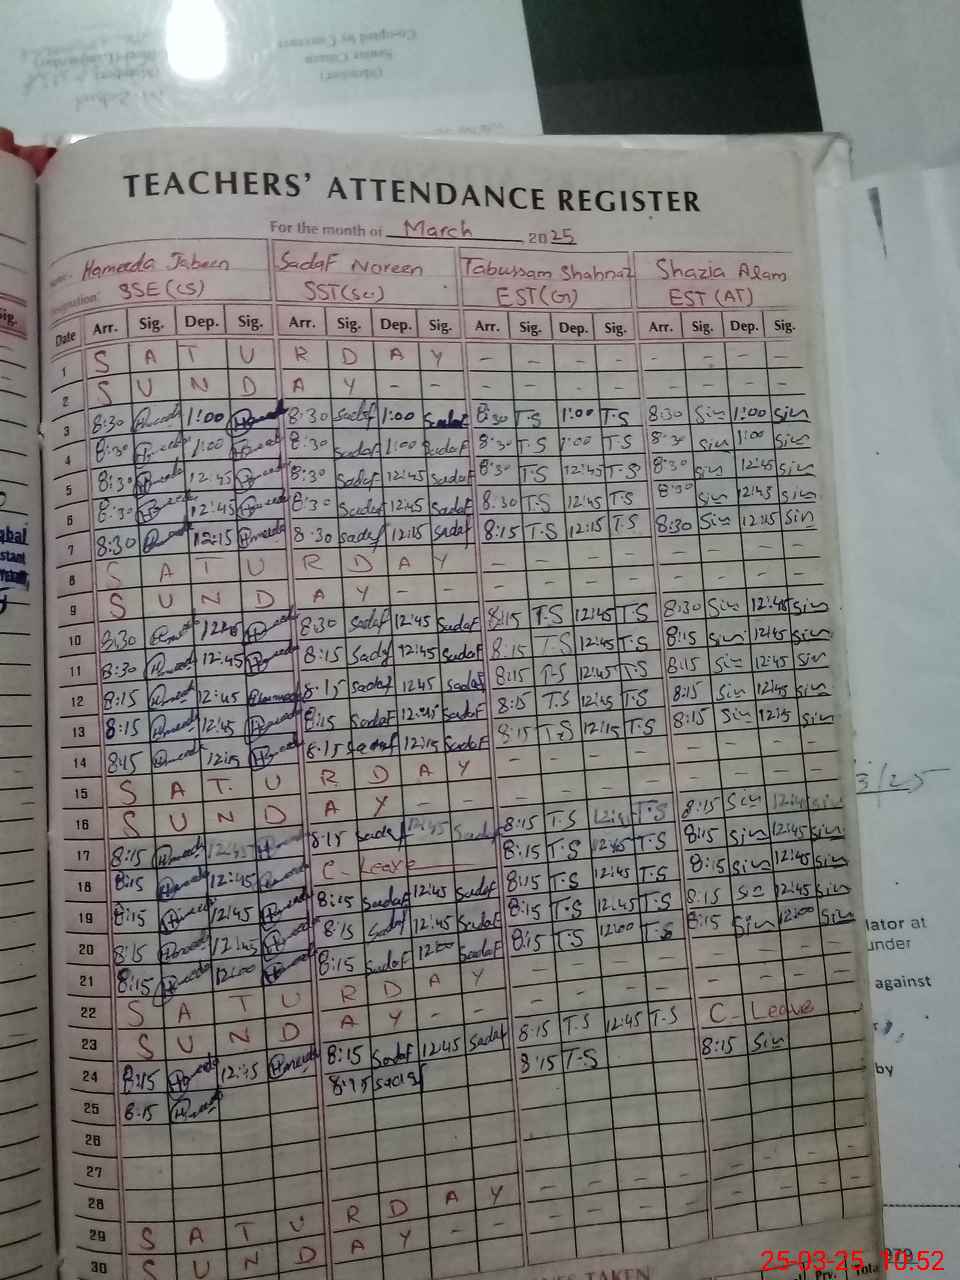 TEACHERS' ATTENDANCE REGISTER
For the month of March 2025
Hameeda Jabeen Sadaf Noreen Tabussam Shahnaz Shazia Alam
Designation: SSE (CS) SST (Sc) EST (G) EST (AT)
Date Arr. Sig. Dep. Sig. Arr. Sig. Dep. Sig. Arr. Sig. Dep. Sig. Arr. Sig. Dep. Sig.
1 S A T U R D A Y - - - - - - - -
2 S U N D A Y - - - - - - - - - -
3 8:30 Hameeda 1:00 Hameeda 8:30 Sadaf 1:00 Sadaf 8:30 T.S 1:00 T.S 8:30 Sin 1:00 Sin
4 8:30 Hameeda 1:00 Hameeda 8:30 Sadaf 1:00 Sadaf 8:30 T.S 1:00 T.S 8:30 Sin 1:00 Sin
5 8:30 Hameeda 12:45 Hameeda 8:30 Sadaf 12:45 Sadaf 8:30 T.S 12:45 T.S 8:30 Sin 12:45 Sin
6 8:30 Hameeda 12:45 Hameeda 8:30 Sadaf 12:45 Sadaf 8:30 T.S 12:45 T.S 8:30 Sin 12:45 Sin
7 8:30 Hameeda 12:15 Hameeda 8:30 Sadaf 12:15 Sadaf 8:15 T.S 12:15 T.S 8:30 Sin 12:15 Sin
8 S A T U R D A Y - - - - - - - -
9 S U N D A Y - - - - - - - -
10 8:30 Hameeda 12:45 Hameeda 8:30 Sadaf 12:45 Sadaf 8:15 T.S 12:45 T.S 8:30 Sin 12:45 Sin
11 8:30 Hameeda 12:45 Hameeda 8:15 Sadaf 12:45 Sadaf 8:15 T.S 12:45 T.S 8:15 Sin 12:45 Sin
12 8:15 Hameeda 12:45 Hameeda 8:15 Sadaf 12:45 Sadaf 8:15 T.S 12:45 T.S 8:15 Sin 12:45 Sin
13 8:15 Hameeda 12:45 Hameeda 8:15 Sadaf 12:45 Sadaf 8:15 T.S 12:45 T.S 8:15 Sin 12:45 Sin
14 8:15 Hameeda 12:15 Hameeda 8:15 Sadaf 12:15 Sadaf 8:15 T.S 12:15 T.S 8:15 Sin 12:15 Sin
15 S A T U R D A Y - - - - - - - -
16 S U N D A Y - - - - - - - - - -
17 8:15 Hameeda 12:45 Hameeda 8:15 Sadaf 12:45 Sadaf 8:15 T.S 12:45 T.S 8:15 Sin 12:45 Sin
18 8:15 Hameeda 12:45 Hameeda C- Leave 8:15 T.S 12:45 T.S 8:15 Sin 12:45 Sin
19 8:15 Hameeda 12:45 Hameeda 8:15 Sadaf 12:45 Sadaf 8:15 T.S 12:45 T.S 8:15 Sin 12:45 Sin
20 8:15 Hameeda 12:45 Hameeda 8:15 Sadaf 12:45 Sadaf 8:15 T.S 12:45 T.S 8:15 Sin 12:45 Sin
21 8:15 Hameeda 12:00 Hameeda 8:15 Sadaf 12:00 Sadaf 8:15 T.S 12:00 T.S 8:15 Sin 12:00 Sin
22 S A T U R D A Y - - - - - - - -
23 S U N D A Y - - - - - - - - - -
24 8:15 Hameeda 12:45 Hameeda 8:15 Sadaf 12:45 Sadaf 8:15 T.S 12:45 T.S C- Leave
25 8:15 Hameeda 8:15 Sadaf 8:15 T.S 8:15 Sin
26
27
28
29 S A T U R D A Y - - - - - - - -
30 S U N D A Y - - - - - - - - - -
Prv. Total
TAKEN
lator at
under
against
by
25-03-25 10:52